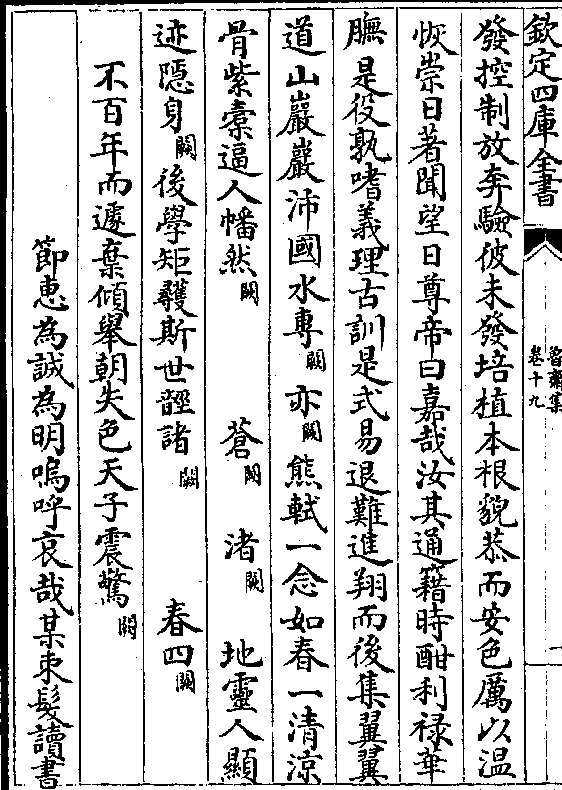 欽定四庫全書
魯齋集
卷十九
發控制放奔驗彼未發培植本根貌恭而安色厲以温
恢崇日著聞望日尊帝曰嘉哉汝其通籍時酣利禄華
膴是役孰嗜義理古訓是式易退難進翔而後集翼翼
道山巖巖沛國水專闕亦闕熊軾一念如春一清涼
骨紫橐逼人幡然闕 蒼闕 渚闕 地靈人顯
迹隱身闕後學矩矱斯世誙諸闕 春四闕
不百年而遽棄傾舉朝失色天子震驚闕
節惠為誠為明嗚呼哀哉某束髮讀書